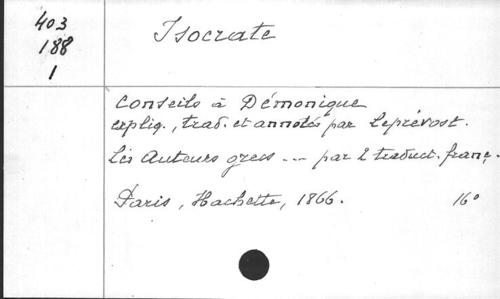 403
188
1
Isocrate
Conseils à Démonique
expliq., trad. et annotés par Leprévost.
Les Auteurs grecs --- par 2 traduct. franç.
Paris, Hachette, 1866. 16°